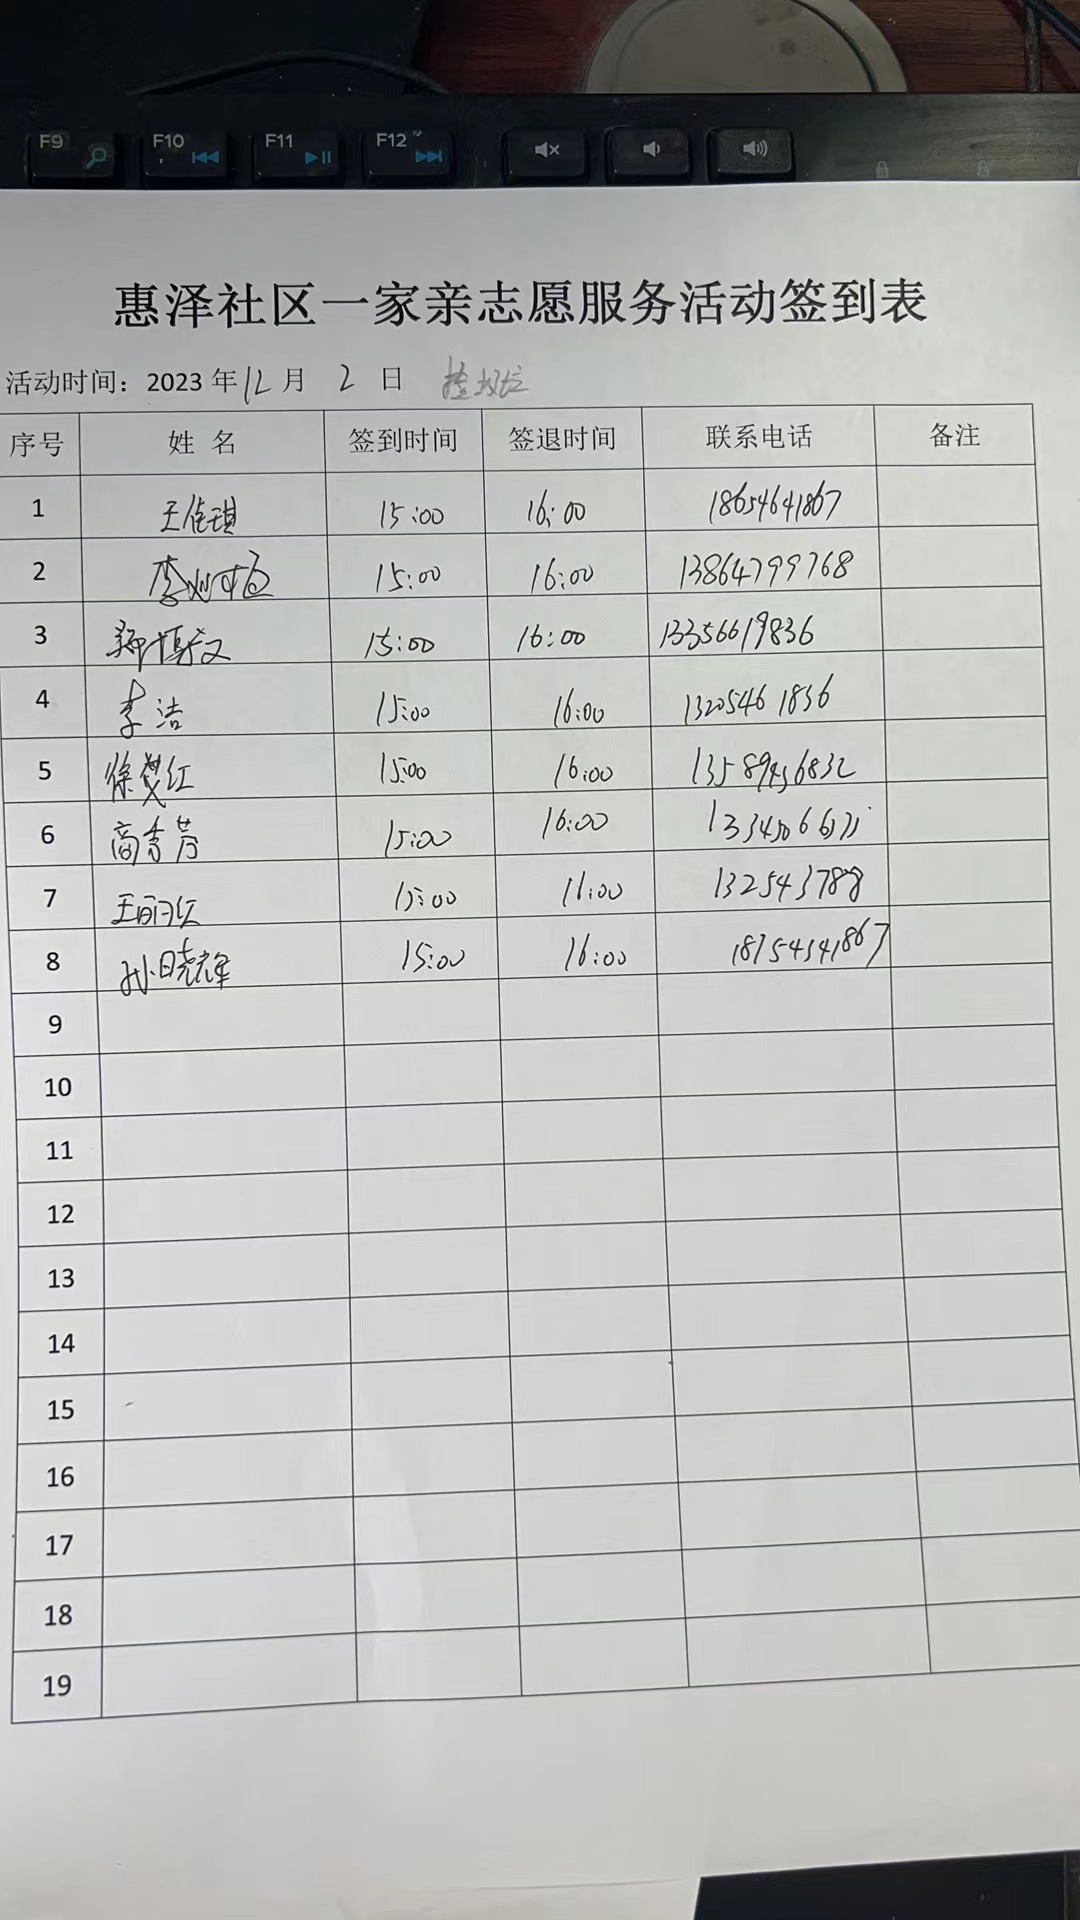 F9 F10 F11 F12
惠泽社区一家亲志愿服务活动签到表
活动时间：2023年12月2日
序号 姓名 签到时间 签退时间 联系电话 备注
1 王佳琪 15:00 16:00 18654641867
2 15:00 16:00 13864799768
3 郭博文 15:00 16:00 13356619836
4 李洁 15:00 16:00 1320546 1836
5 徐红 15:00 16:00
6 高秀芳 15:00 16:00
7 王丽红 15:00 16:00 132543788
8 孙晓辉 15:00 16:00
9
10
11
12
13
14
15
16
17
18
19